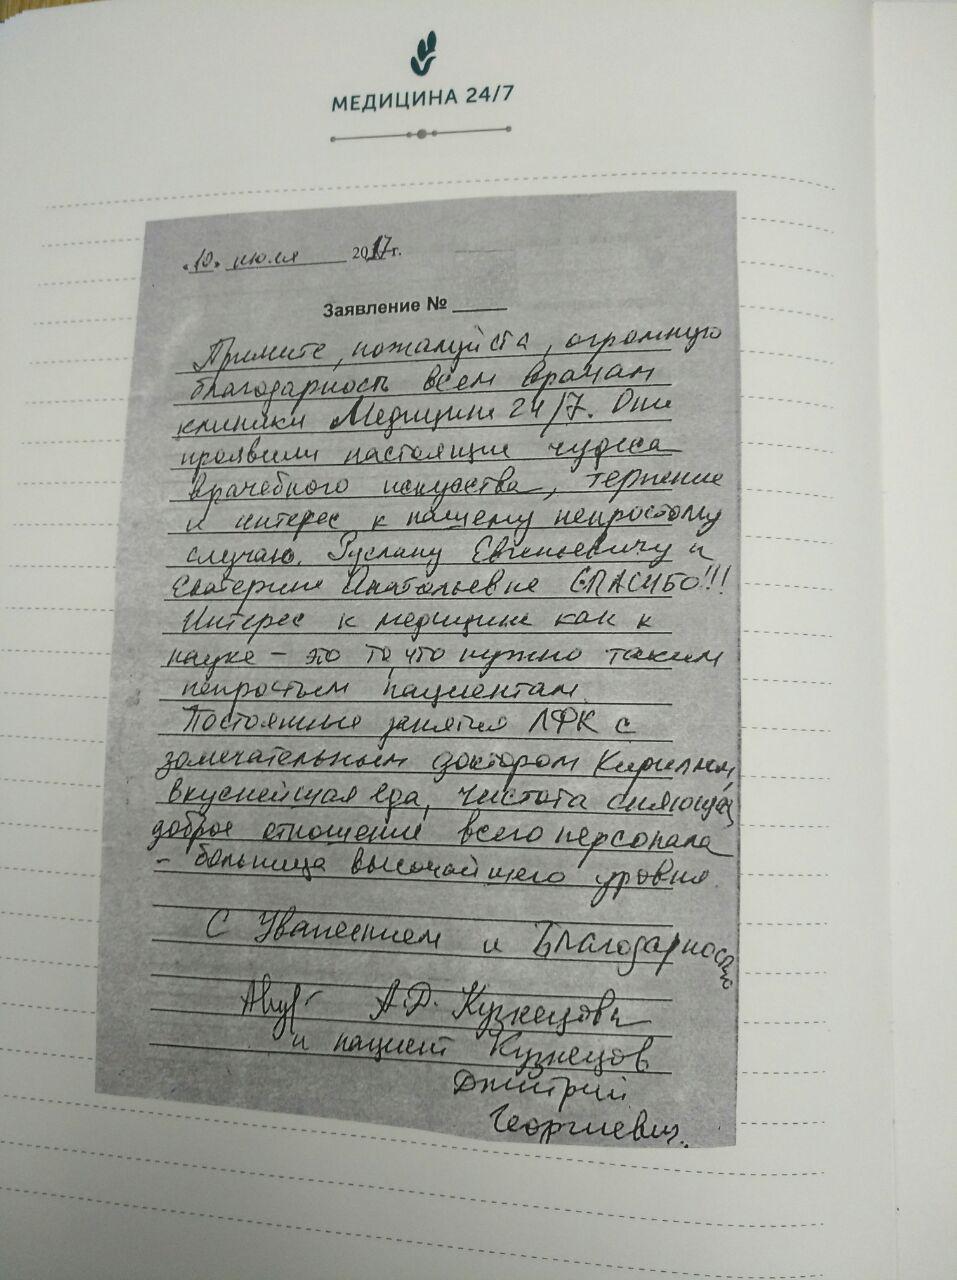 МЕДИЦИНА 24/7
«10» июля 2017г.
Заявление №
Примите, пожалуйста, огромную
благодарность всем врачам
клиники Медицина 24/7. Они
проявили настоящие чудеса
врачебного искусства, терпение
и интерес к нашему непростому
случаю. Руслану Евгеньевичу и
Екатерине Анатольевне СПАСИБО!!!
Интерес к медицине как к
науке – это то, что нужно таким
непростым пациентам.
Постоянные занятия ЛФК с
замечательным доктором Кириллом,
вкуснейшая еда, чистота сияющая,
доброе отношение всего персонала
– больница высочайшего уровня.
С Уважением и Благодарностью
А.Д. Кузнецова
и пациент Кузнецов
Дмитрий
Георгиевич.